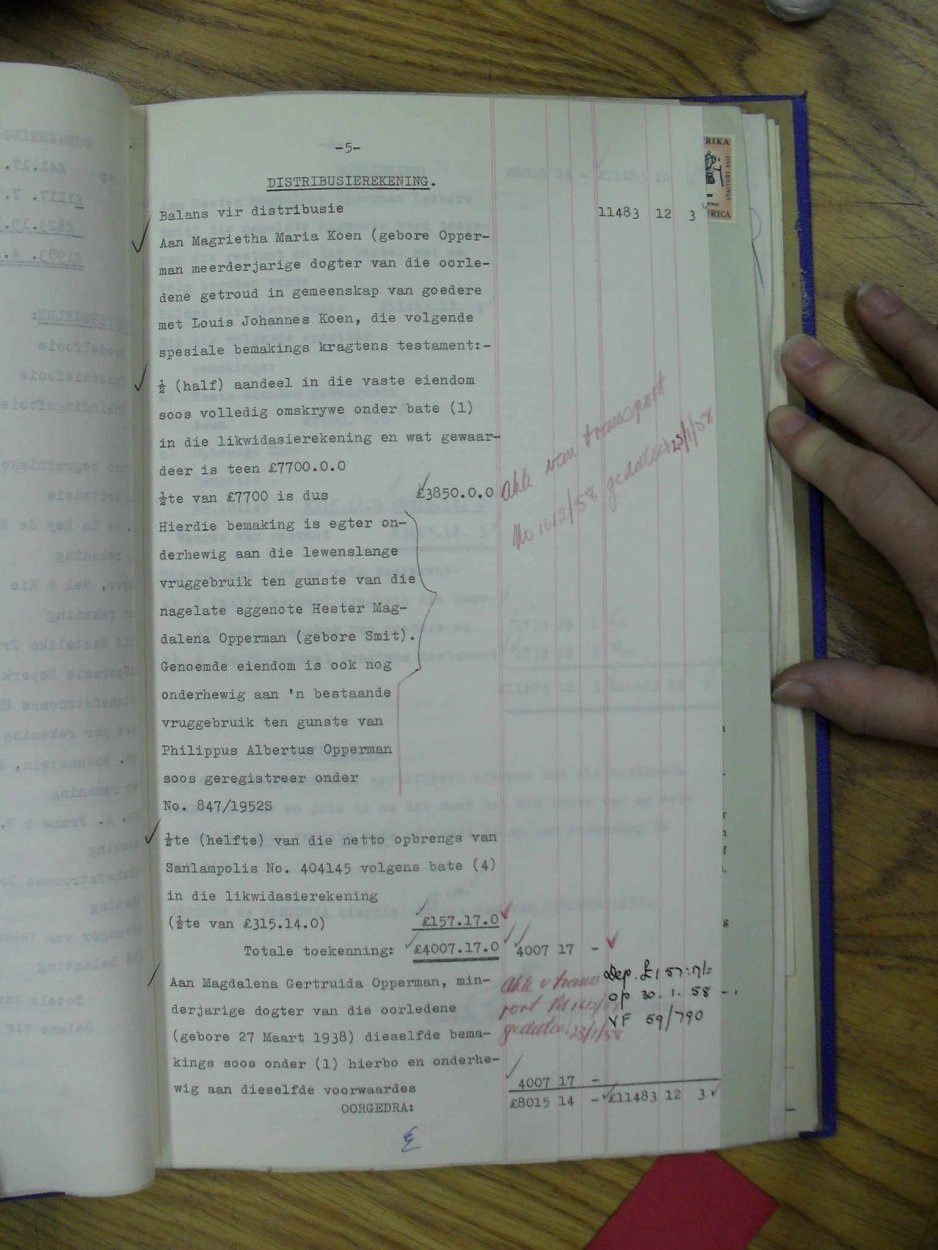 -5-
DISTRIBUSIEREKENING.
Balans vir distribusie 11483 12 3
Aan Magrietha Maria Koen (gebore Opper-
man meerderjarige dogter van die oorle-
dene getroud in gemeenskap van goedere
met Louis Johannes Koen, die volgende
spesiale bemakings kragtens testament:-
½ (half) aandeel in die vaste eiendom
soos volledig omskrywe onder bate (1)
in die likwidasierekening en wat gewaar-
deer is teen £7700.0.0
½te van £7700 is dus £3850.0.0
Akte van transport
No 1612/58 gedateer 23/1/58
Hierdie bemaking is egter on-
derhewig aan die lewenslange
vruggebruik ten gunste van die
nagelate eggenote Hester Mag-
dalena Opperman (gebore Smit).
Genoemde eiendom is ook nog
onderhewig aan 'n bestaande
vruggebruik ten gunste van
Philippus Albertus Opperman
soos geregistreer onder
No. 847/1952S
½te (helfte) van die netto opbrengs van
Sanlampolis No. 404145 volgens bate (4)
in die likwidasierekening
(½te van £315.14.0) £157.17.0
Totale toekenning: £4007.17.0 4007 17 -
Aan Magdalena Gertruida Opperman, min-
derjarige dogter van die oorledene
(gebore 27 Maart 1938) dieselfde bema-
kings soos onder (1) hierbo en onderhe-
wig aan dieselfde voorwaardes 4007 17 -
Akte v trans
port No 1612/58
gedateer 23/1/58
Dep. £157:17/-
op 30.1.58
VF 59/790
OORGEDRA: £8015 14 - £11483 12 3
RIKA
RICA